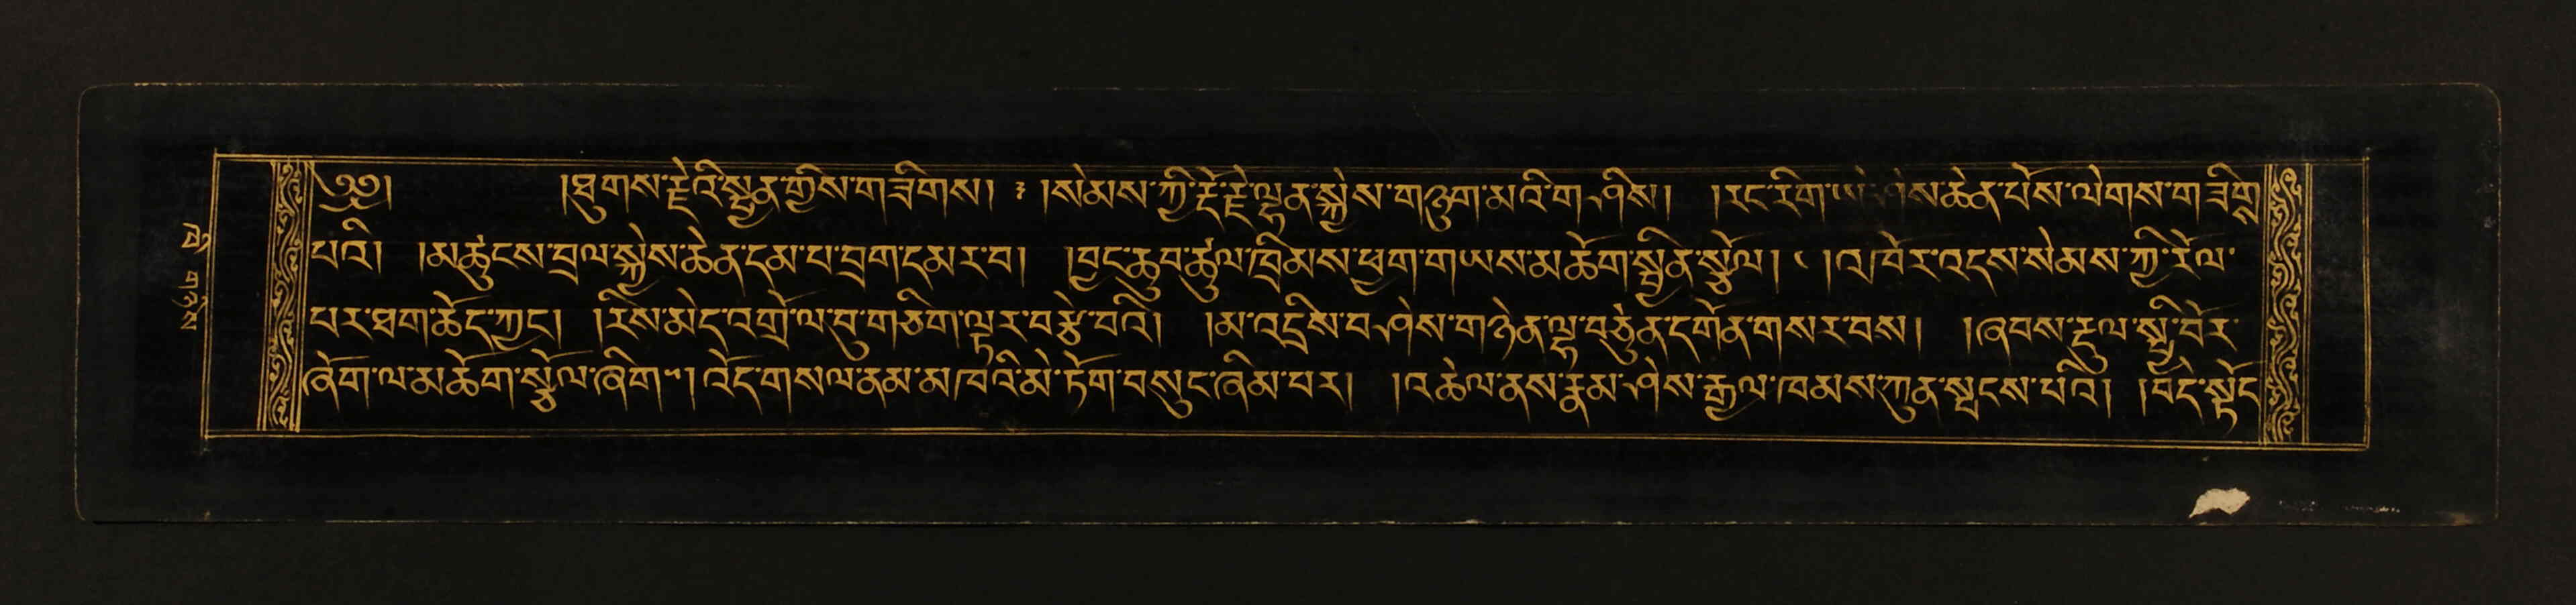 ༄༅། །ཐུགས་རྗེའི་སྤྱན་གྱིས་གཟིགས། ༣ །སེམས་ཀྱི་རྡོ་རྗེ་ལྷན་སྐྱེས་གཉུག་མའི་གཤིས། །རང་རིག་ཡེ་ཤེས་ཆེན་པོས་ལེགས་གཟིགས
པའི། །མཚུངས་བྲལ་སྐྱེས་ཆེན་དམ་པ་བྲག་དམར་བ། །བྱང་ཆུབ་ཚུལ་ཁྲིམས་ཕྱག་གཡས་མཆོག་སྦྱིན་སྩོལ། ༤ །འཁོར་འདས་སེམས་ཀྱི་རོལ་
པར་ཐག་ཆོད་ཀྱང། །རིས་མེད་འགྲོ་ལ་བུ་གཅིག་ལྟར་བརྩེ་བའི། །མ་འདྲིས་བཤེས་གཉེན་ལྷ་བཙུན་དགོན་གསར་བས། །ཞབས་རྡུལ་སྤྱི་བོར་
ཞོག་ལ་མཆོག་སྩོལ་ཞིག ༥ །འོད་གསལ་ནམ་མཁའི་མེ་ཏོག་བསུང་ཞིམ་པར། །འཆེལ་ནས་རྣམ་ཤེས་རྒྱལ་ཁམས་ཀུན་སྤངས་པའི། །བདེ་སྟོང